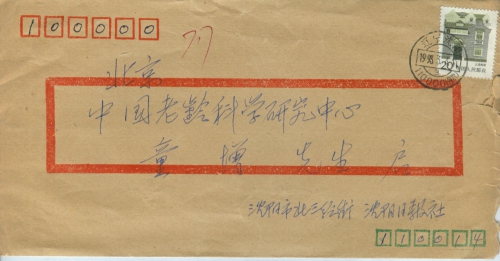 100000
北京
中国老龄科学研究中心
童增 先生 启
沈阳市北三经街 沈阳日报社
110014